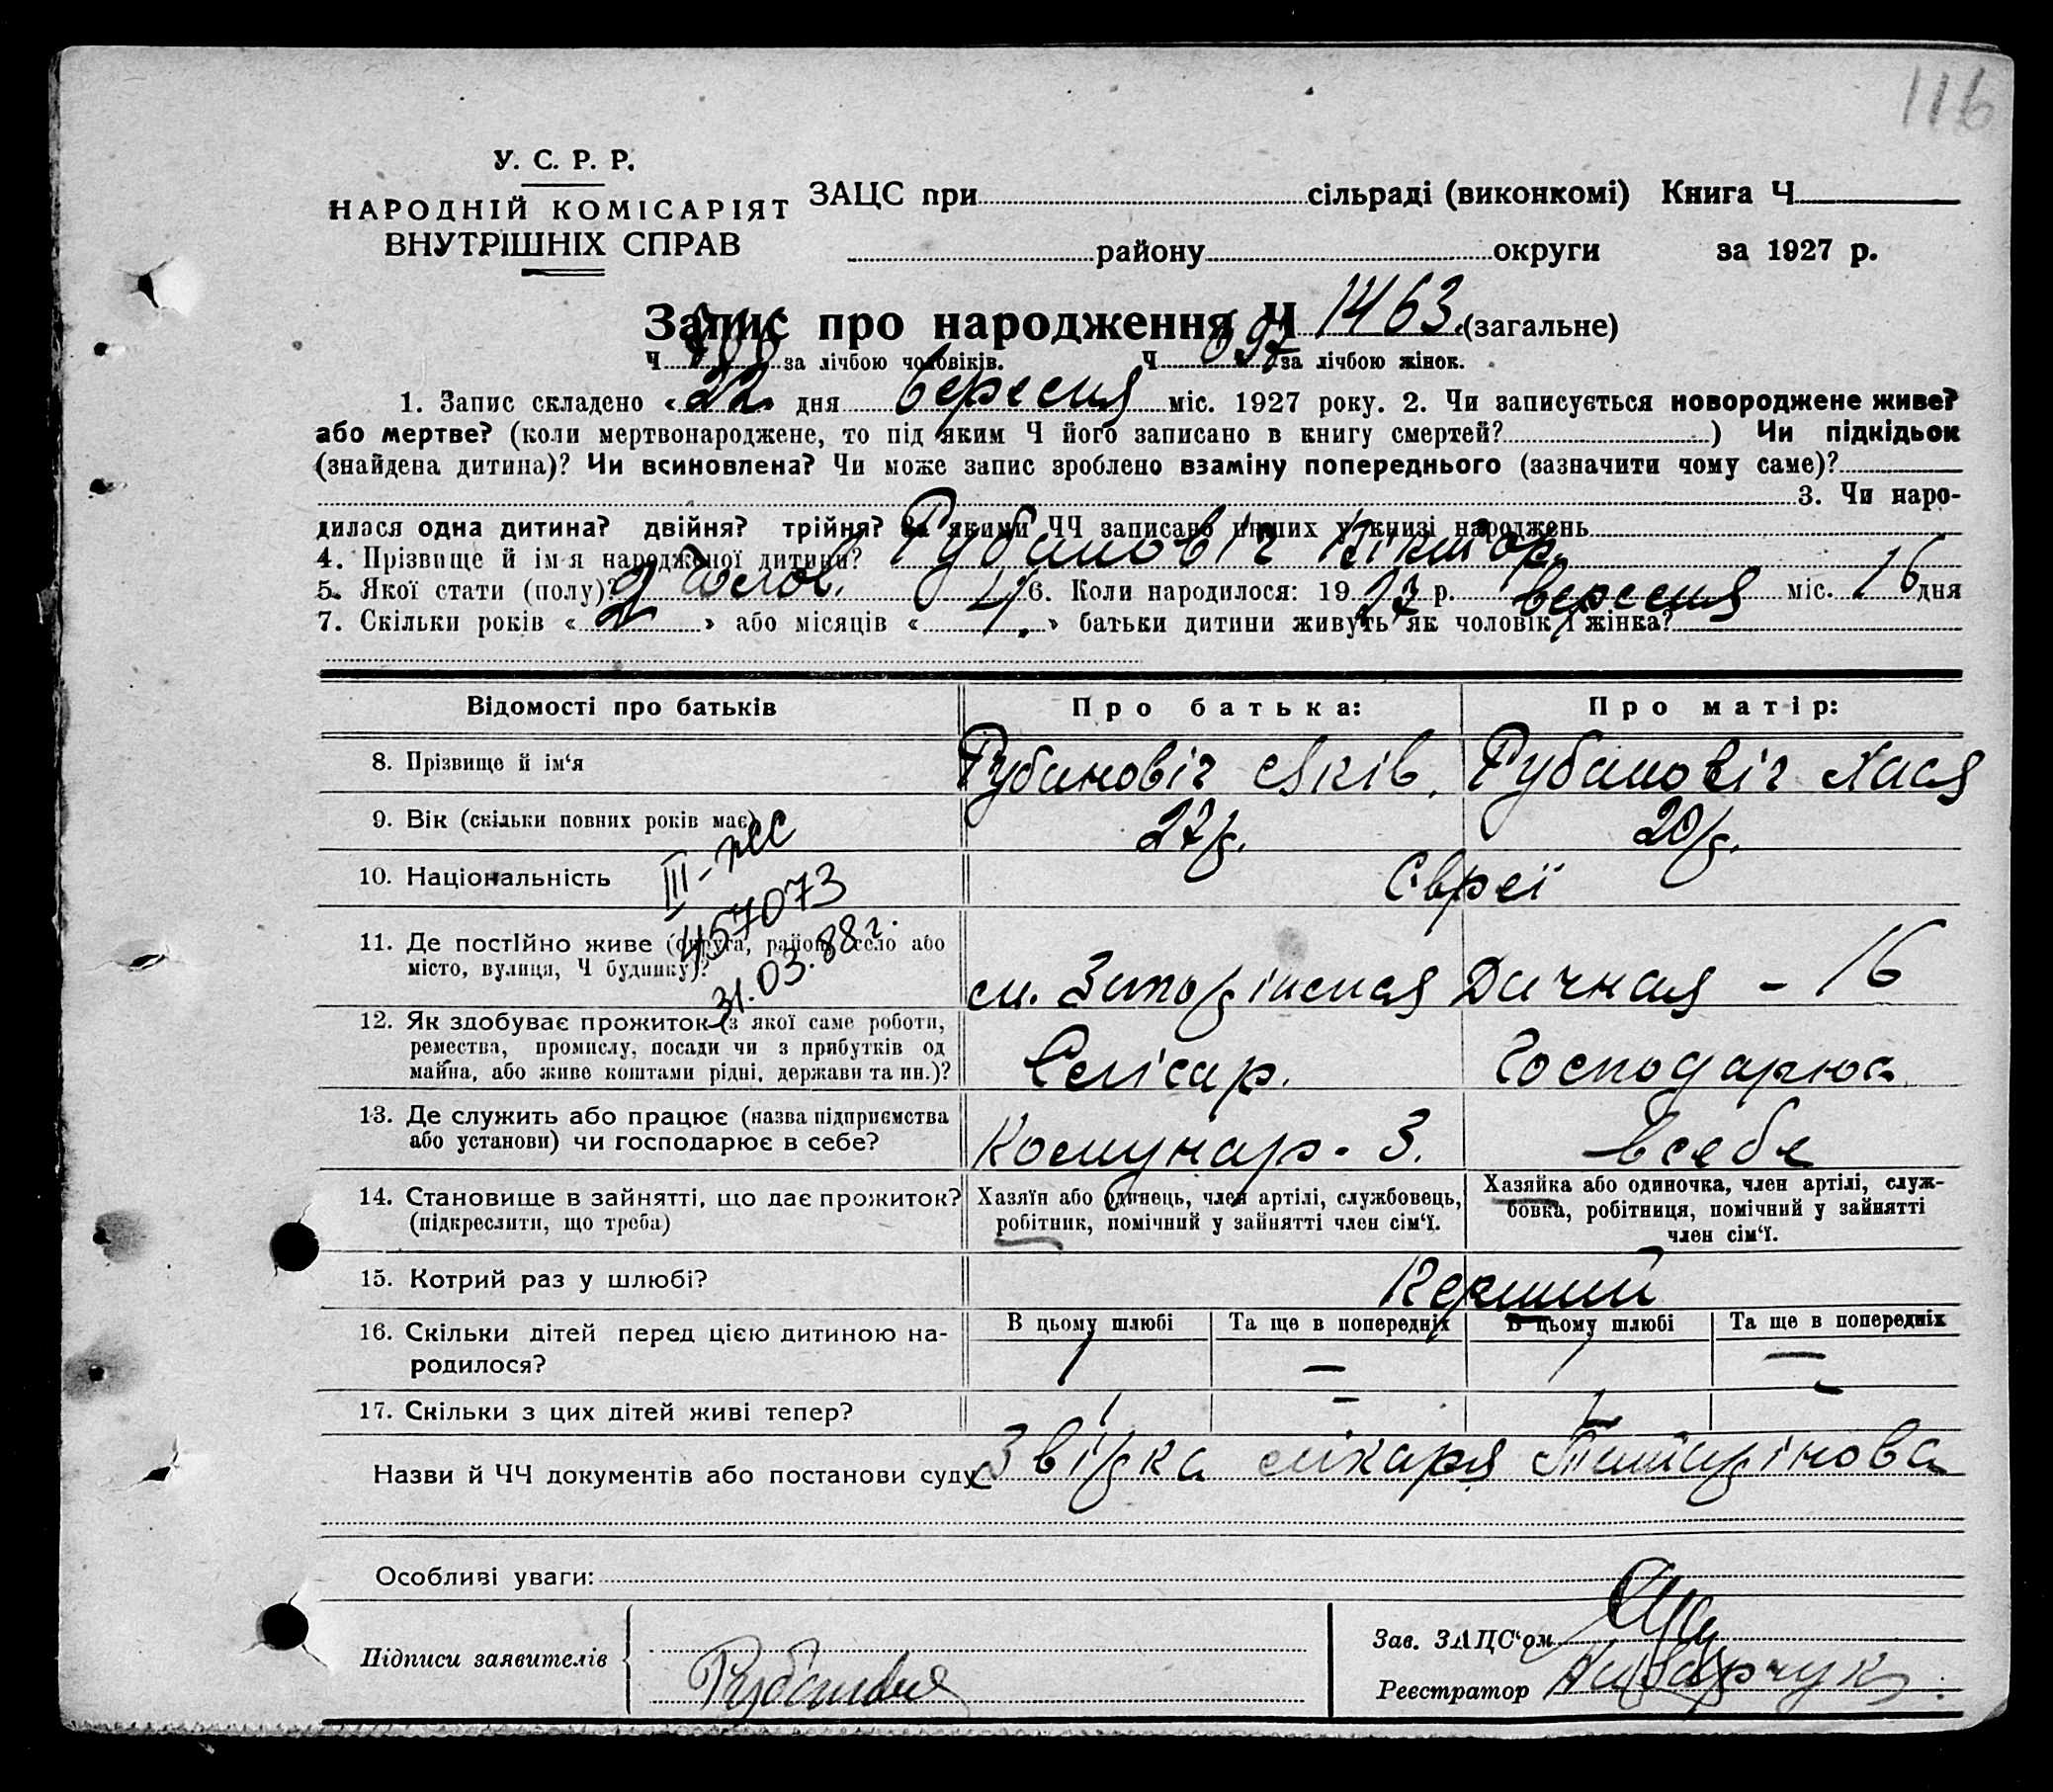 116
У. С. Р. Р.
НАРОДНІЙ КОМІСАРІЯТ
ВНУТРІШНІХ СПРАВ
ЗАЦС при сільраді (виконкомі) Книга Ч
району округи за 1927 р.
Запис про народження Ч 1463 (загальне)
Ч за лічбою чоловіків. Ч 697 за лічбою жінок.
1. Запис складено « 22 » дня вересня міс. 1927 року. 2. Чи записується новороджене живе?
або мертве? (коли мертвонароджене, то під яким Ч його записано в книгу смертей? ) Чи підкідьок
(знайдена дитина)? Чи всиновлена? Чи може запис зроблено взаміну попереднього (зазначити чому саме)?
3. Чи наро-
дилася одна дитина? двійня? трійня? За якими ЧЧ записано инших у книзі народжень
4. Прізвище й ім'я народженої дитини? Рубановіч Віктор
5. Якої стати (полу)? чолов. 6. Коли народилося: 1927 р. вересня міс. 16 дня
7. Скільки років « 2 » або місяців « » батьки дитини живуть як чоловік і жінка?
Відомості про батьків Про батька: Про матір:
8. Прізвище й ім'я Рубановіч Яків. Рубановіч Хася
9. Вік (скільки повних років має) 27 р. 20 р.
10. Національність Євреї
III-ЖС
457073
31.03.88 г.
11. Де постійно живе (округа, район, село або
місто, вулиця, Ч будинку)? Дачная - 16
12. Як здобуває прожиток (з якої саме роботи,
ремества, промислу, посади чи з прибутків од
майна, або живе коштами рідні, держави та ин.)? Слісар. Господарює
13. Де служить або працює (назва підприємства
або установи) чи господарює в себе? Комунар - 3. в себе
14. Становище в зайнятті, що дає прожиток?
(підкреслити, що треба)
Хазяїн або одинець, член артілі, службовець,
робітник, помічний у зайнятті член сім'ї.
Хазяйка або одиночка, член артілі, служ-
бовка, робітниця, помічний у зайнятті
член сім'ї.
15. Котрий раз у шлюбі? Перший
16. Скільки дітей перед цією дитиною на-
родилося?
В цьому шлюбі Та ще в попередніх В цьому шлюбі Та ще в попередніх
1 — 1 —
17. Скільки з цих дітей живі тепер? 1 - 1 -
Назви й ЧЧ документів або постанови суду Звідка лікаря
Особливі уваги:
Підписи заявителів
Зав. ЗАЦС'ом
Реєстратор